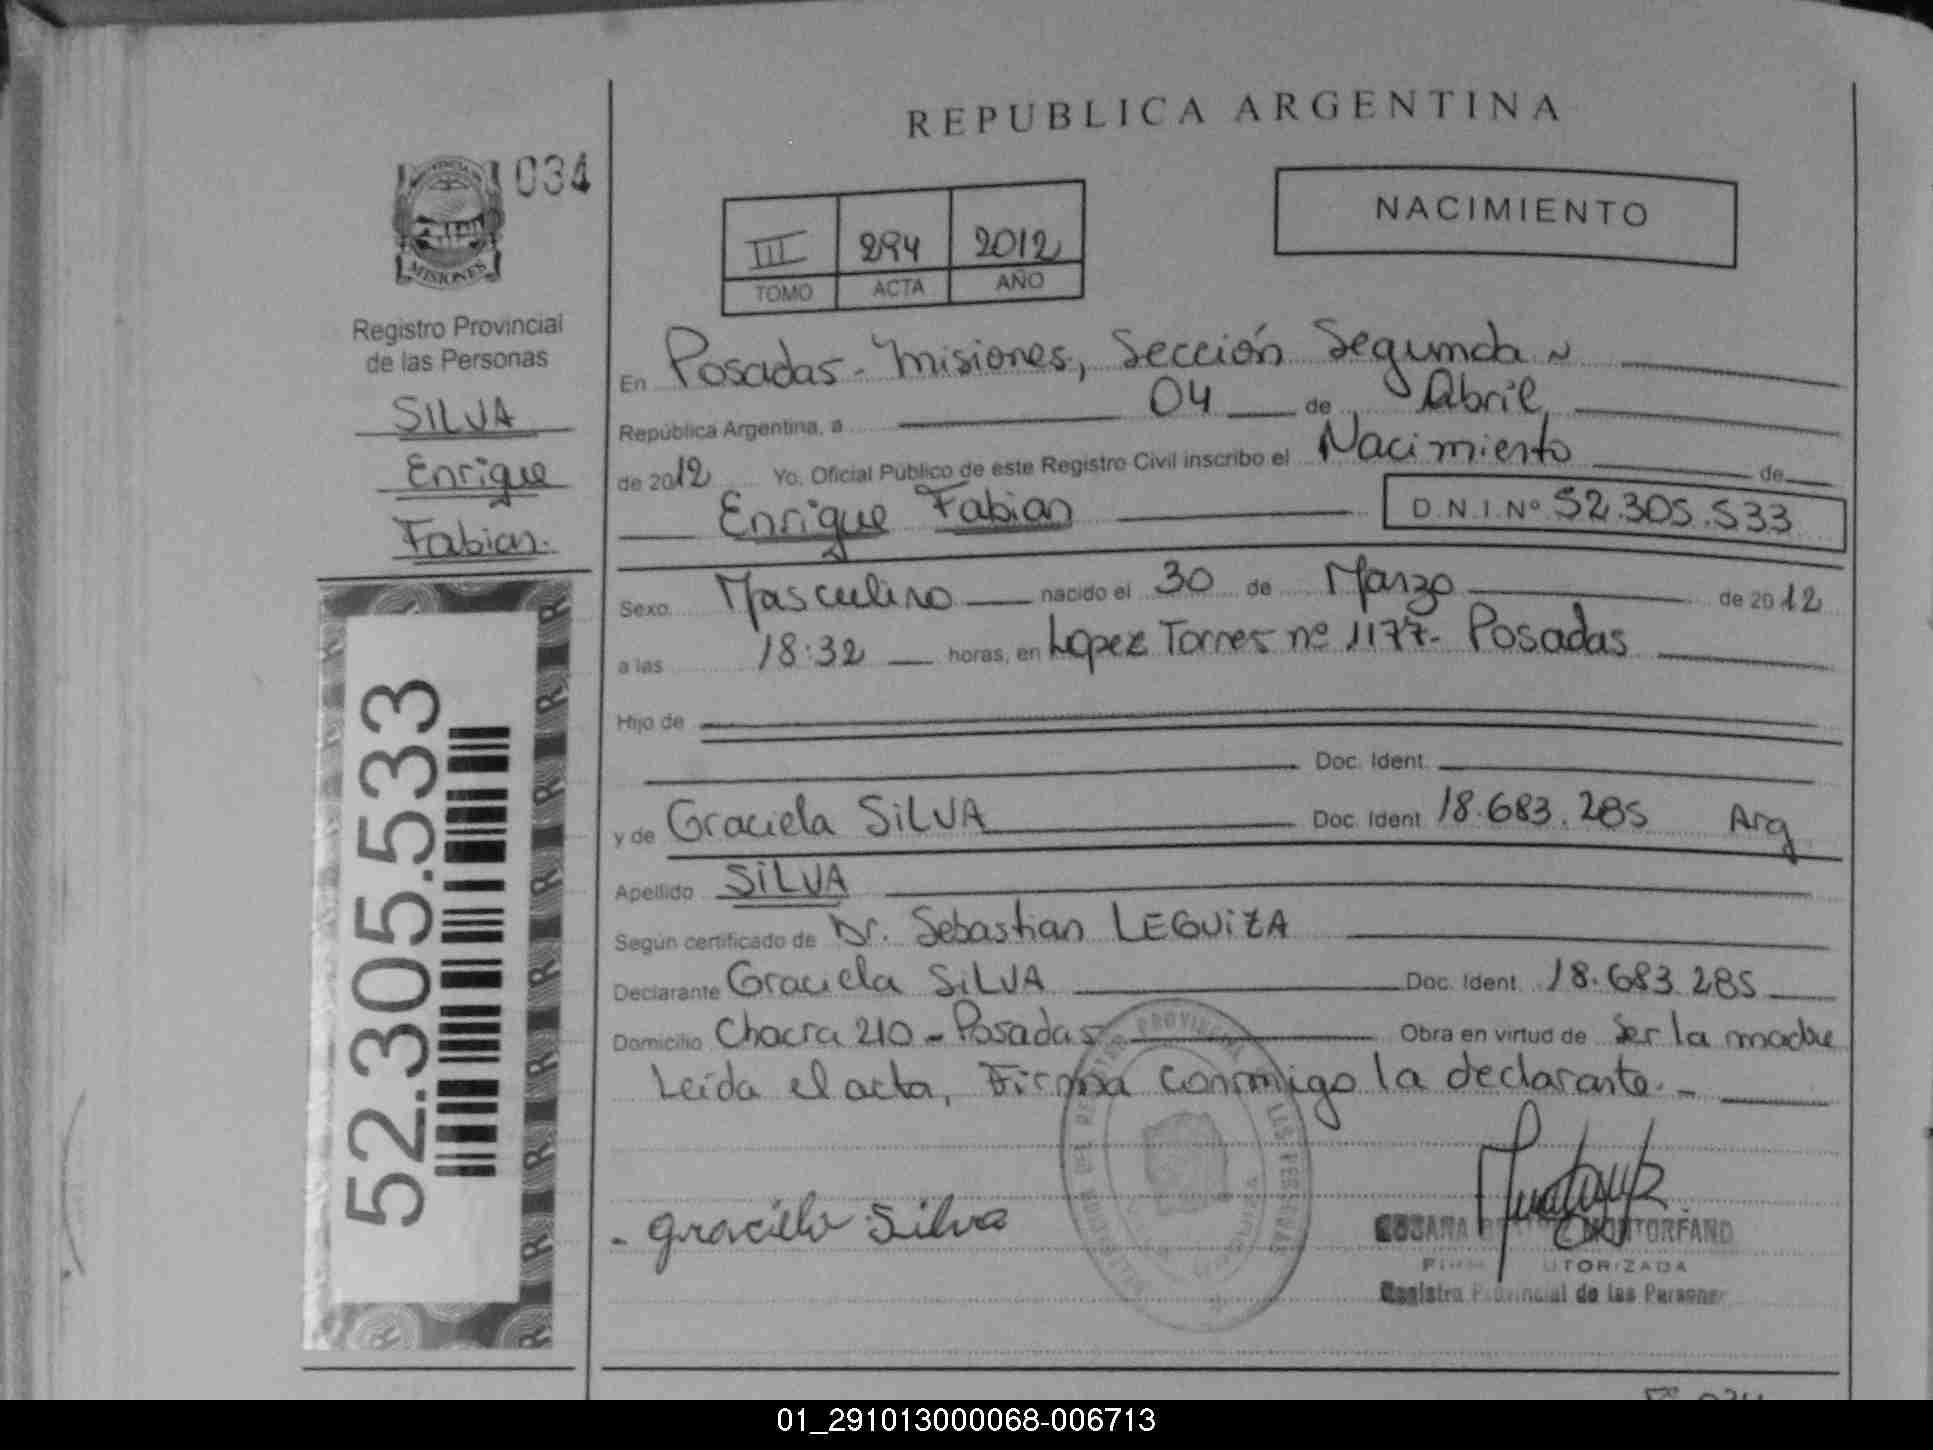 REPUBLICA ARGENTINA
034
MISIONES
Registro Provincial
de las Personas
SILVA
Enrique
Fabian.
52.305.533
NACIMIENTO
III 294 2012
TOMO ACTA AÑO
En Posadas - Misiones, Sección Segunda
República Argentina, a 04 de Abril,
de 2012 Yo, Oficial Público de este Registro Civil inscribo el Nacimiento de
Enrique Fabian D.N.I.Nº 52.305.533
Sexo Masculino nacido el 30 de Marzo de 2012
a las 18:32 horas, en Lopez Torres nº 1177- Posadas
Hijo de
Doc. Ident.
y de Graciela SILVA Doc. Ident 18.683.285 Arg
Apellido SILVA
Según certificado de Dr. Sebastian LEGUIZA
Declarante Graciela SILVA Doc. Ident. 18.683.285
Domicilio Chacra 210 - Posadas Obra en virtud de ser la madre
Leida el acta, Firma conmigo la declarante. -
- graciela Silva
MONTORFANO
AUTORIZADA
Registro Provincial de las Personas
01_291013000068-006713